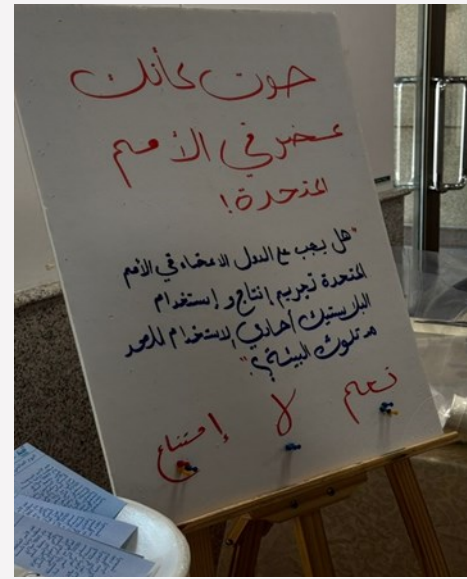 صوت كأنك
عضو في الأمم
المتحدة!
"هل يجب على الدول الاعضاء في الأمم
المتحدة تجريم إنتاج و إستخدام
البلاستيك أحادي الاستخدام للحد
من تلوث البيئة؟"
نعم لا إمتناع